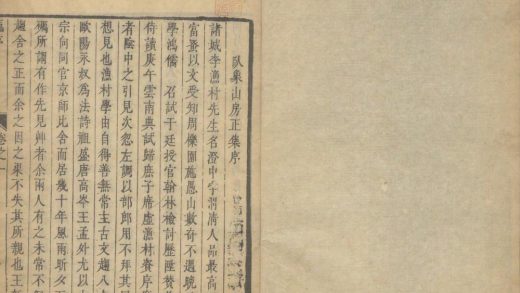 臥象山房正集序
諸城李漁村先生名澄中字渭清人品最高
富蚤以文受知周櫟園施愚山數奇不遇號
學鴻儒 召試于廷授官翰林檢討歷陞贊
侍讀庚午雲南典試歸庶子席虛漁村資序
者陰中之引見次忽左調以部郎用不拜其
想見也漁村學由自得善無常主古文趨八
歐陽永叔為法詩祖盛唐高岑王孟外尤以
宗向同官京師比舍而居幾十年風雨斯夕
碼所謂有作先見艸者余兩人有之未常不
趨舍之正而余之因之果不失其所親也王
卷之一